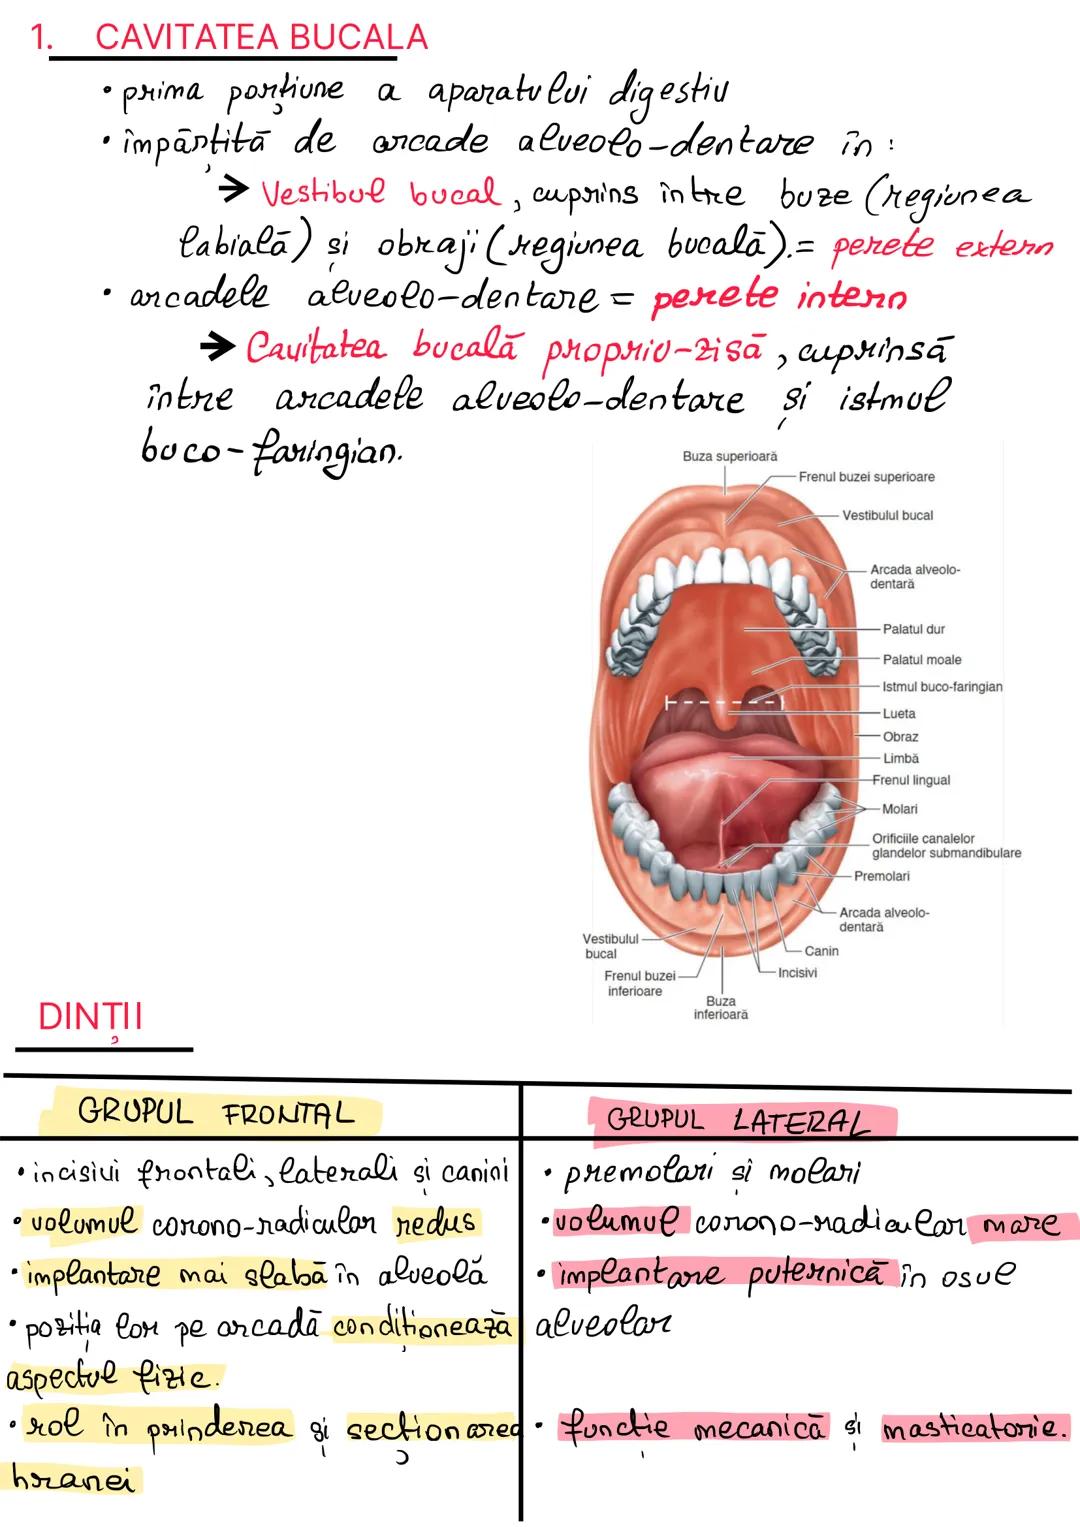 1. CAVITATEA BUCALA
• prima porțiune a aparatului digestiv
• împărțită de arcade alveolo-dentare în :
→ Vestibul bucal, cuprins între buze (regiunea
labială) și obraji (regiunea bucală).= perete extern
• arcadele alveolo-dentare = perete intern
→ Cavitatea bucală propriu-zisă, cuprinsă
între arcadele alveolo-dentare și istmul
buco-faringian.
Buza superioară
Frenul buzei superioare
Vestibulul bucal
Arcada alveolo-
dentară
Palatul dur
Palatul moale
Istmul buco-faringian
Lueta
Obraz
Limbă
Frenul lingual
Molari
Orificiile canalelor
glandelor submandibulare
Premolari
Arcada alveolo-
dentară
Canin
Incisivi
Vestibulul
bucal
Frenul buzei
inferioare
Buza
inferioară
DINȚII
GRUPUL FRONTAL
• incisivi frontali, laterali și canini
• volumul corono-radicular redus
• implantare mai slabă în alveolă
• poziția lor pe arcadă condiționează
aspectul fizic.
• rol în prinderea și secționarea
hranei
GRUPUL LATERAL
• premolari și molari
• volumul corono-radicular mare
• implantare puternică în osul
alveolar
• funcție mecanică și masticatorie.